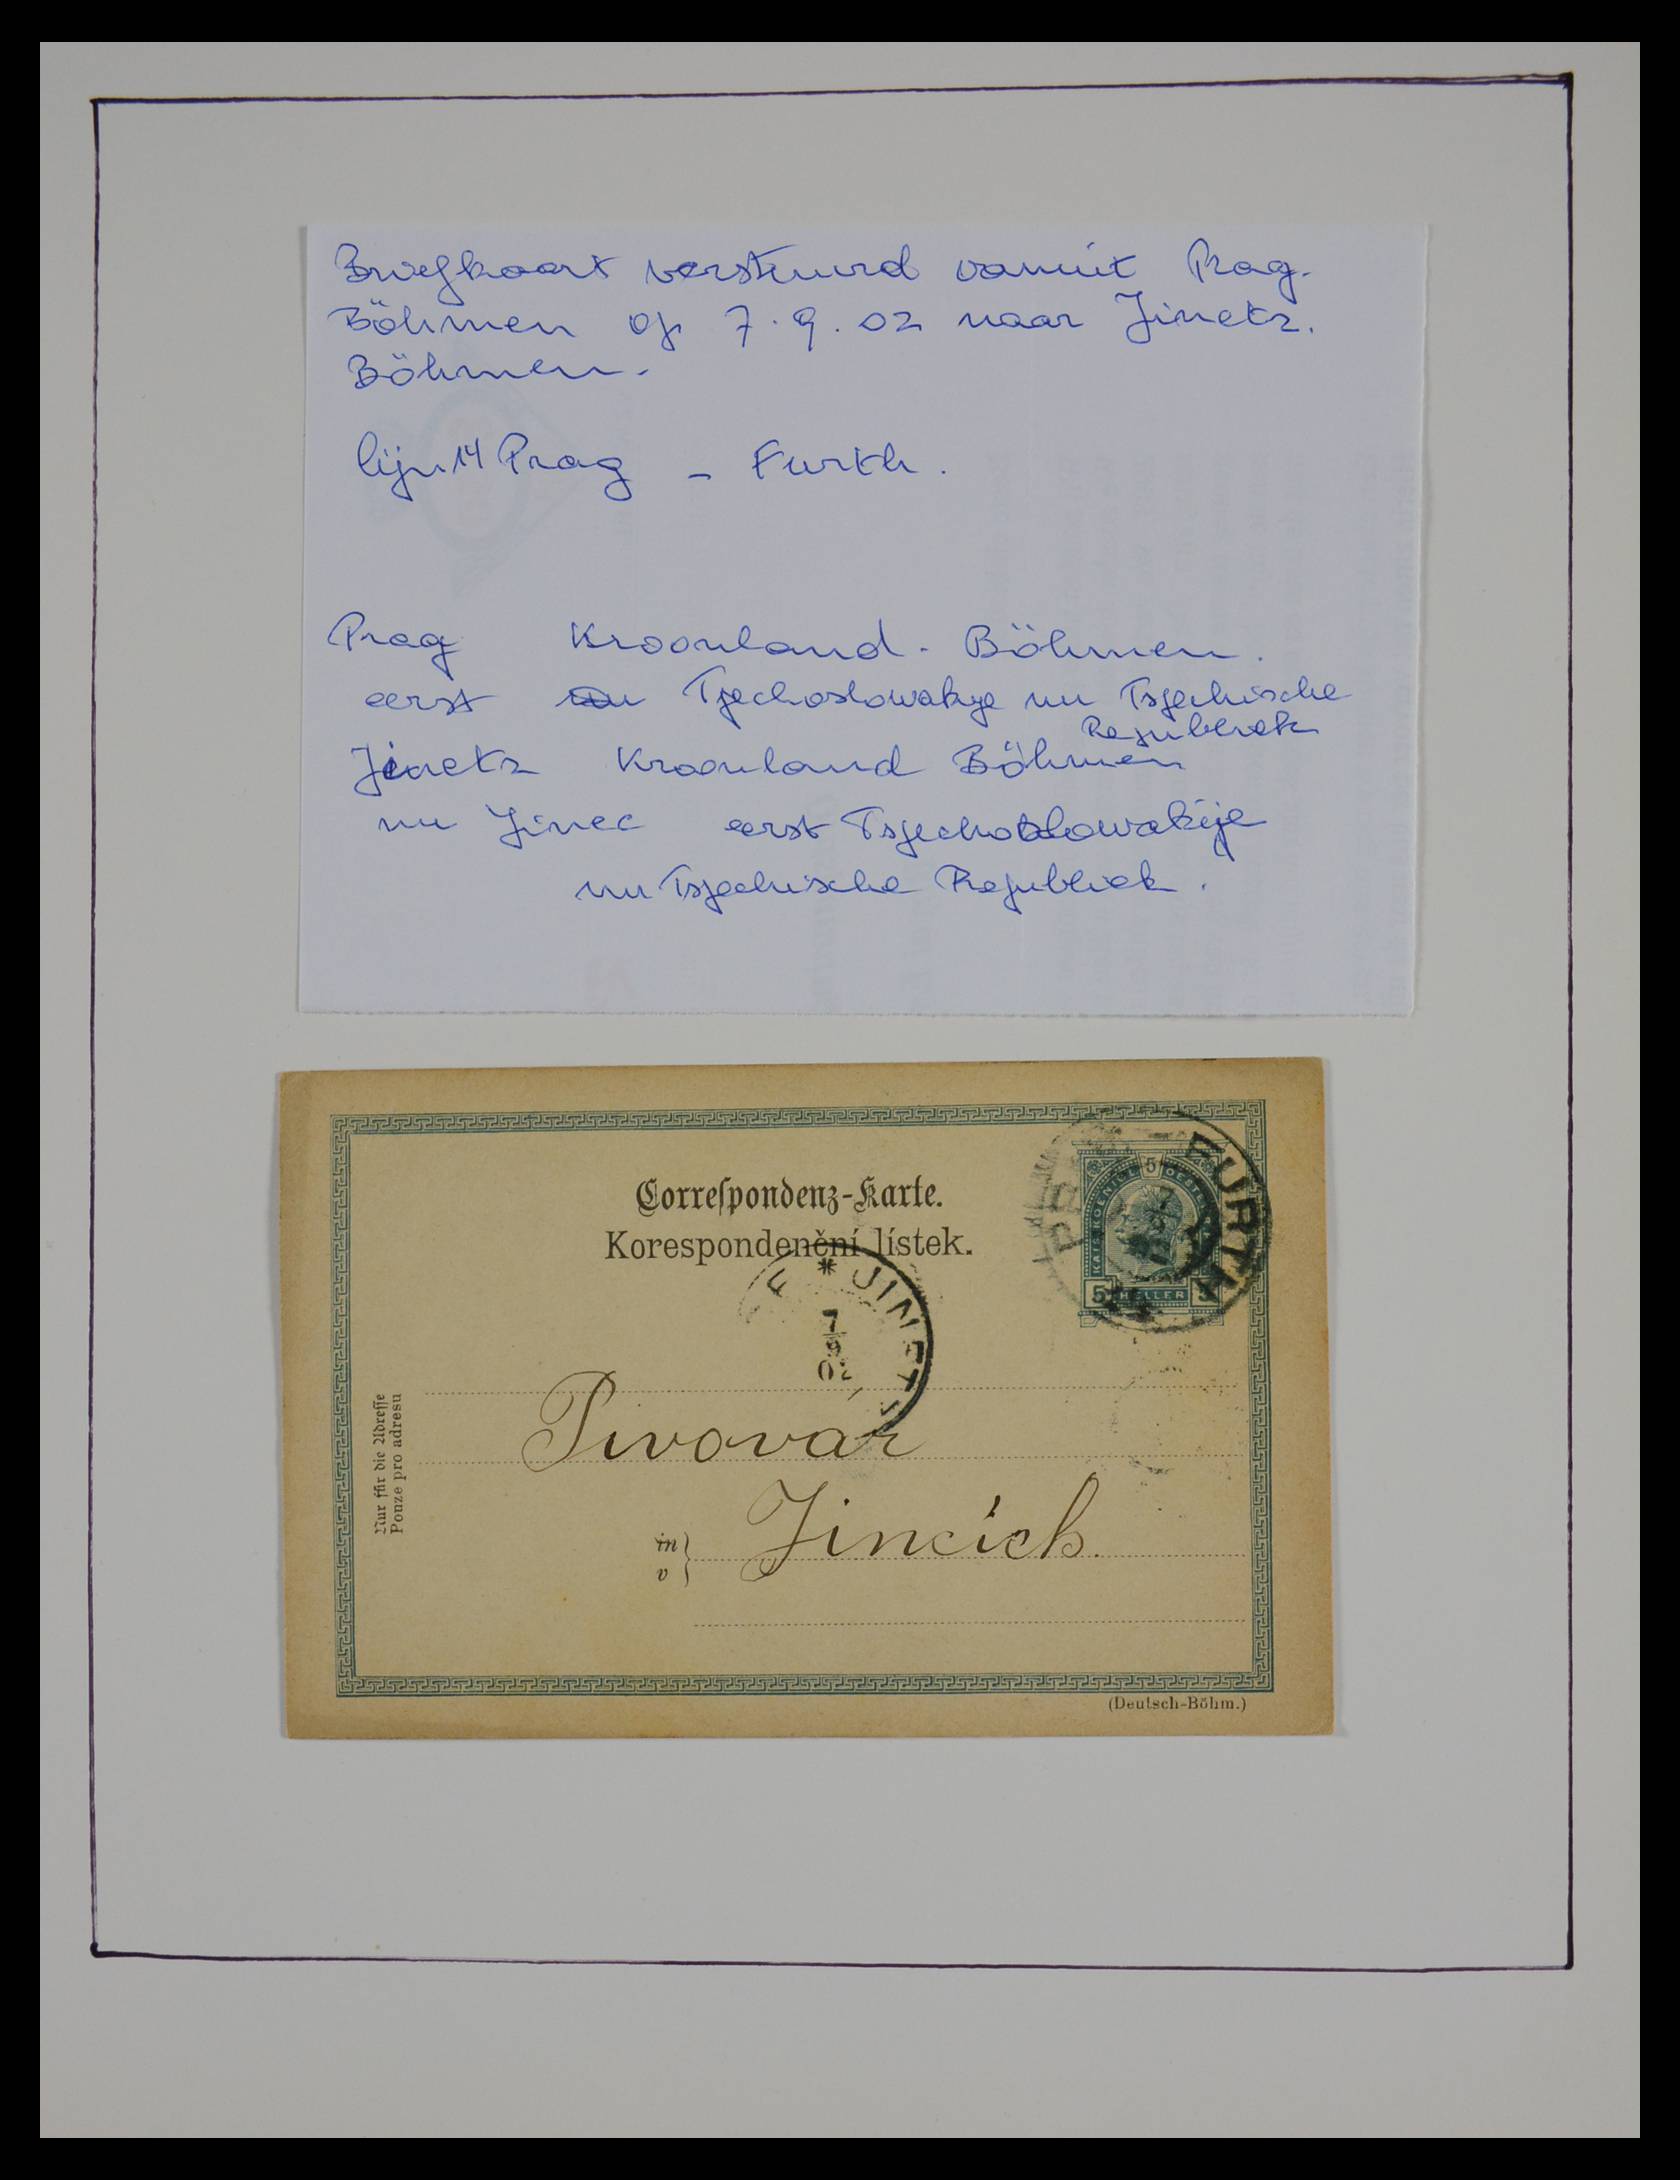 Briefkaart verstuurd vanuit Prag.
Böhmen op 7.9.02 naar Jinetz.
Böhmen.
lijn 14 Prag - Furth.
Prag Kroonland - Böhmen.
eerst Tsjechoslowakije nu Tsjechische
Republiek
Jinetz Kroonland Böhmen
nu Jinec eerst Tsjechoslowakije
nu Tsjechische Republiek.
Correspondenz-Karte.
Korespondenční lístek.
FURTH
5
5 HELLER 5
* JINETZ
7
9
02
Nur für die Adresse
Pouze pro adresu
Pivovar
in
v
Jincích.
(Deutsch-Böhm.)